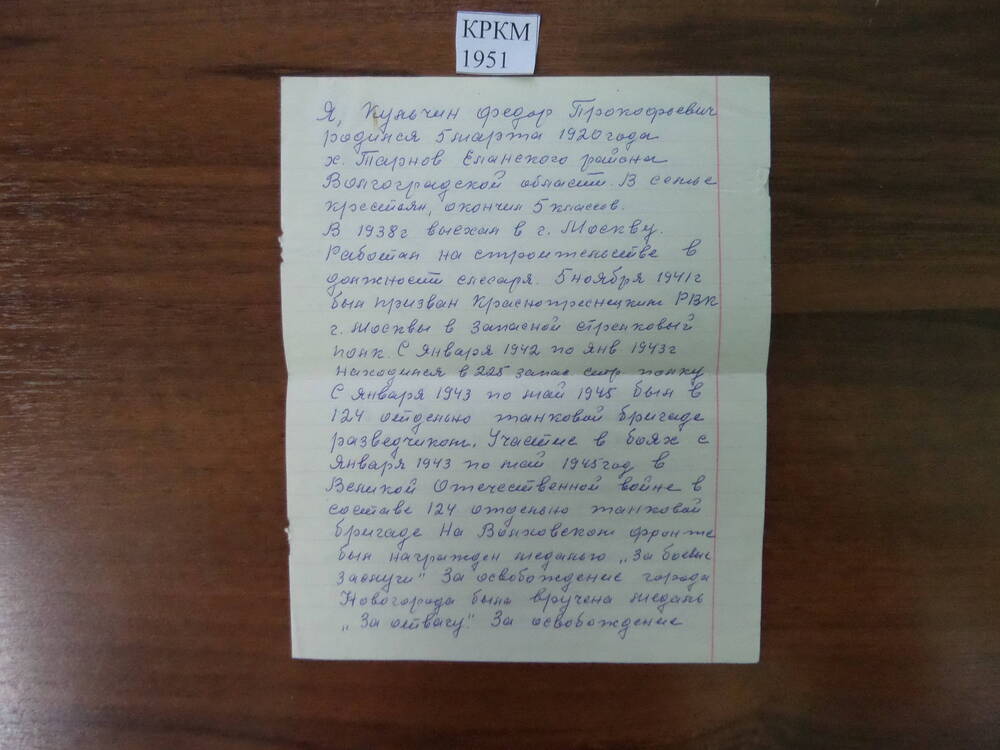 КРКМ
1951
Я, Кульчин Федор Прокофьевич
родился 5 марта 1920 года
х. Тарнов Еланского района
Волгоградской области. В семье
крестьян, окончил 5 классов.
В 1938г выехал в г. Москву.
Работал на строительстве в
должности слесаря. 5 ноября 1941г
был призван Краснопреснецким РВК
г. Москвы в Запасной стрелковый
полк. С Января 1942 по Янв. 1943г
находился в 225 запас стр полку
С Января 1943 по май 1945 был в
124 отдельно танковой бригаде
разведчиком. Участие в боях с
Января 1943 по май 1945 год в
Великой Отечественной войне в
составе 124 отдельно танковой
бригаде На Волховском фронте
был награжден медалью „За боевые
заслуги" За освобождение города
Новогорода была вручена медаль
„За отвагу." За освобождение